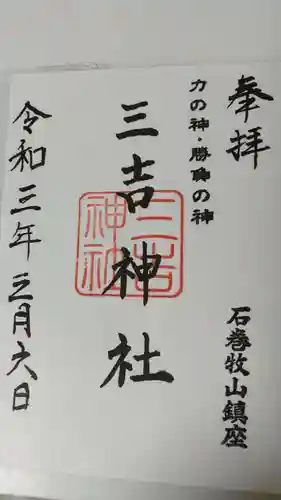 奉拝
石巻牧山鎮座
力の神・勝負の神
三吉神社
三吉神社
令和三年三月六日